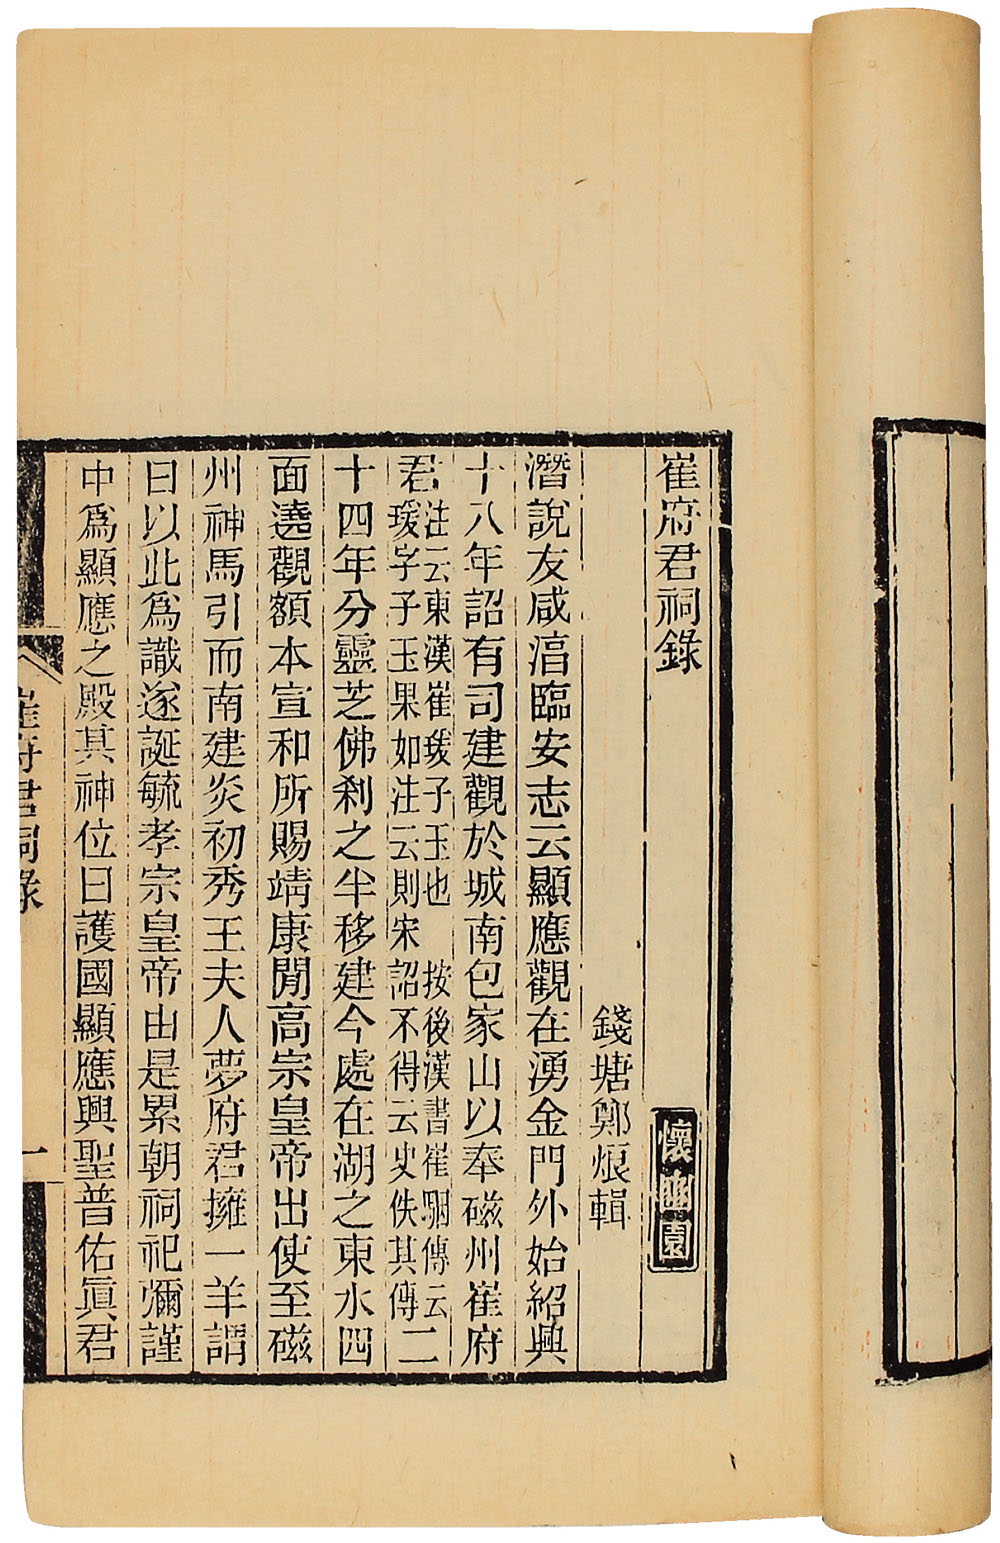 崔府君祠錄
懷豳園
錢塘鄭烺輯
潛說友咸湻臨安志云顯應觀在湧金門外始紹興
十八年詔有司建觀於城南包家山以奉磁州崔府
君注云東漢崔瑗子玉也 按後漢書崔駰傳云
瑗字子玉果如注云則宋詔不得云史佚其傳二
十四年分靈芝佛刹之半移建今處在湖之東水四
面遶觀額本宣和所賜靖康閒高宗皇帝出使至磁
州神馬引而南建炎初秀王夫人夢府君擁一羊謂
曰以此爲識遂誕毓孝宗皇帝由是累朝祠祀彌謹
中爲顯應之殿其神位曰護國顯應興聖普佑眞君
崔府君祠錄
一